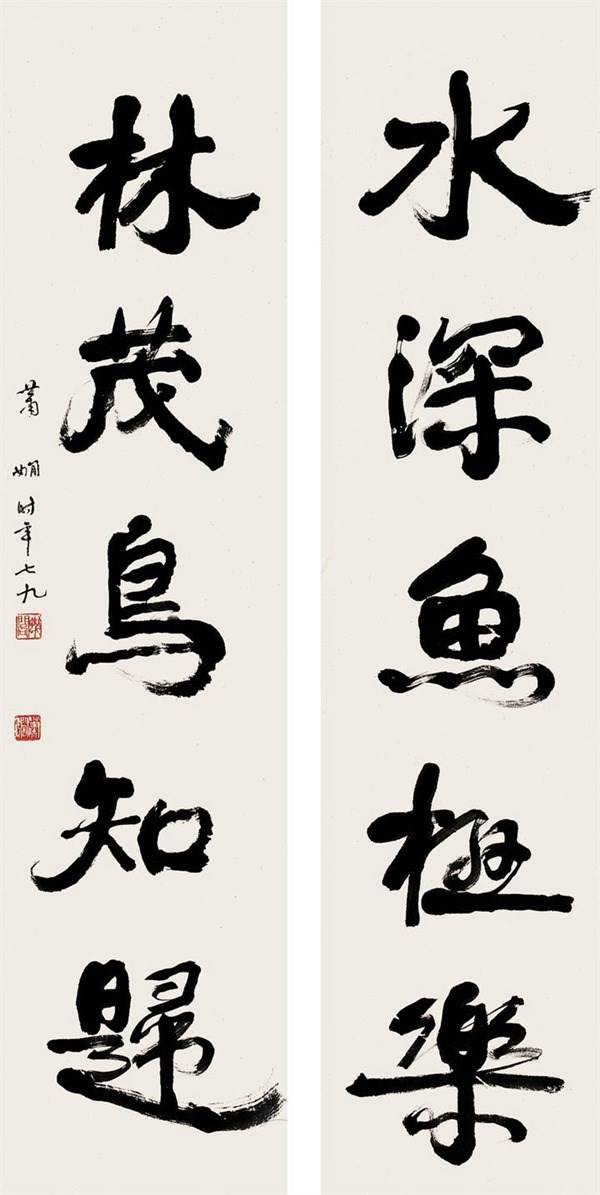 水深魚極樂
林茂鳥知歸
蕭嫻时年七九